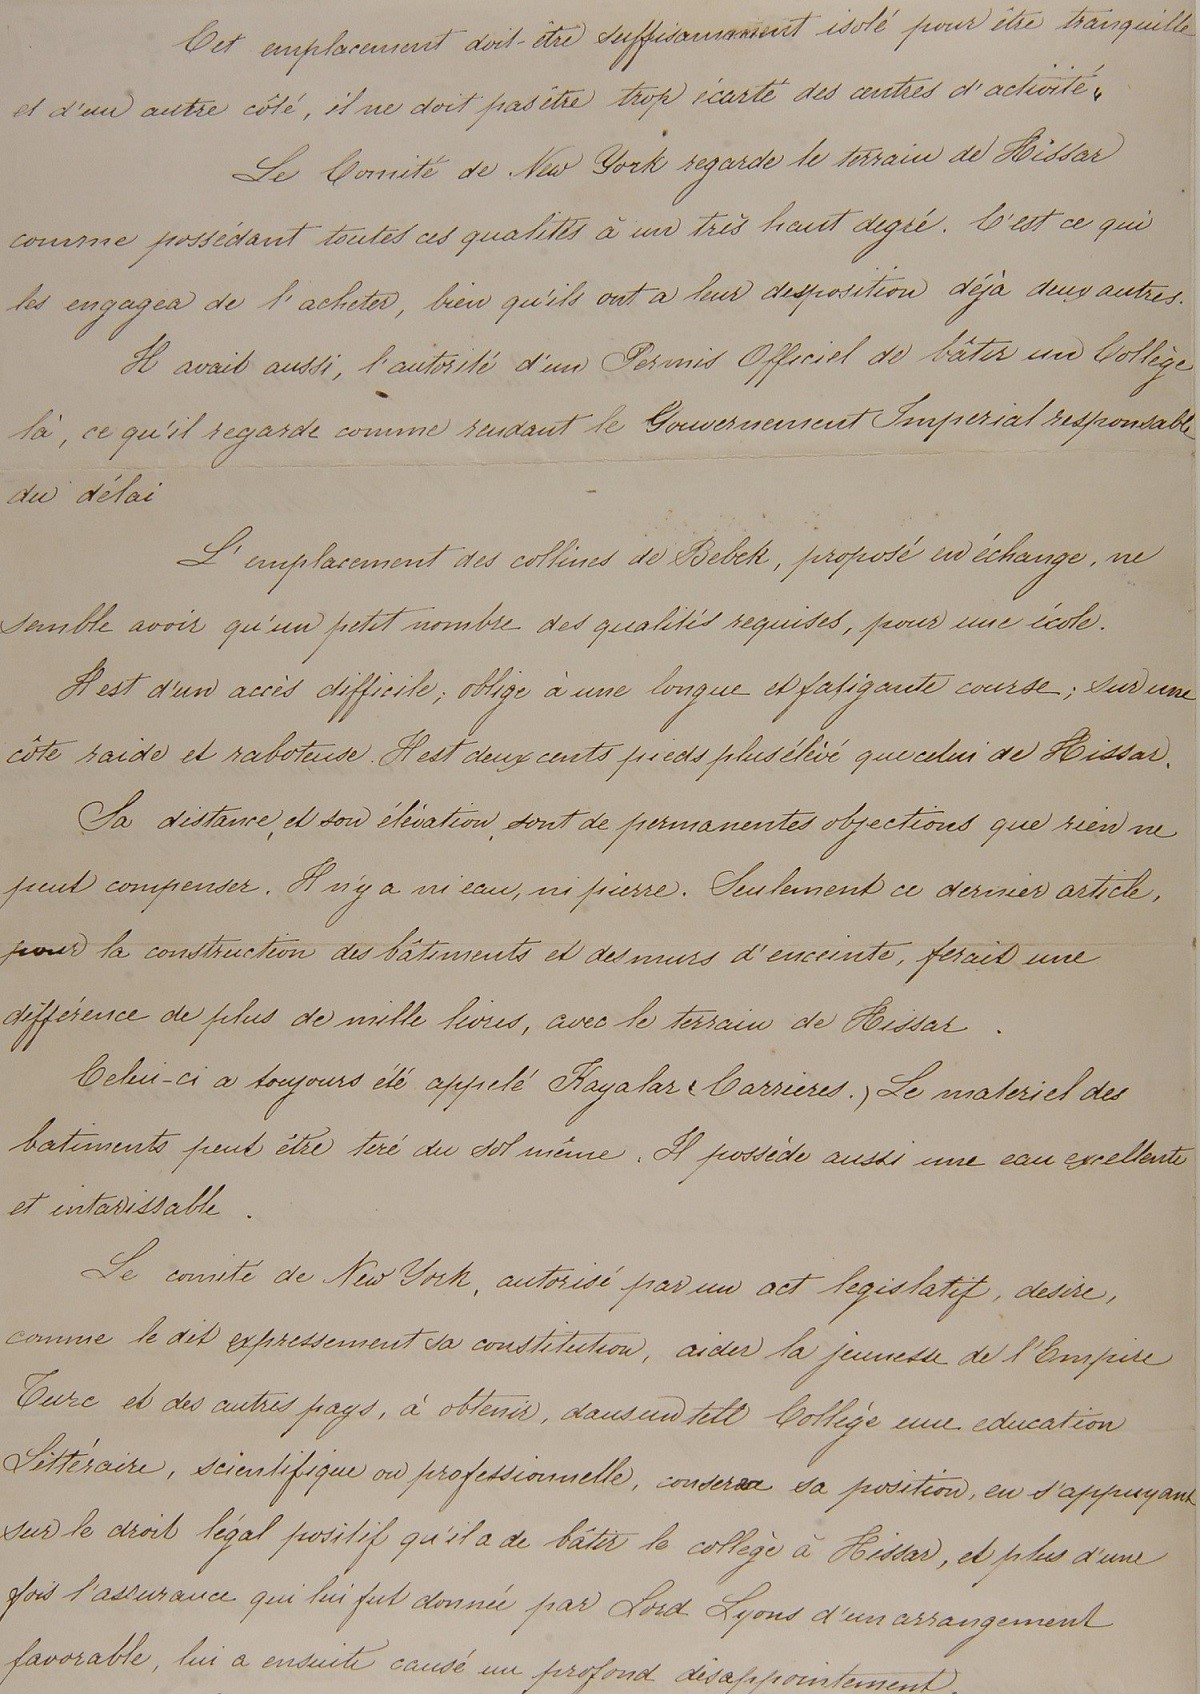 Cet emplacement doit-être suffisamment isolé pour être tranquille
et d'un autre côté, il ne doit pas être trop écarté des centres d'activité.
Le Comité de New York regarde le terrain de Hissar
comme possédant toutes ces qualités à un très haut degré. C'est ce qui
les engagea de l'acheter, bien qu'ils ont a leur desposition déjà deux autres.
Il avait aussi, l'autorité d'un Permis Officiel de bâtir un Collège
là, ce qu'il regarde comme rendant le Gouvernement Imperial responsable
du délai
L'emplacement des collines de Bebek, proposé en échange, ne
semble avoir qu'un petit nombre des qualités requises, pour une école.
Il est d'un accès difficile; oblige à une longue et fatigante course; sur une
côte raide et raboteuse. Il est deux cents pieds plus élévé que celui de Hissar.
Sa distance, et son élévation, sont de permanentes objections que rien ne
peut compenser. Il n'y a ni eau, ni pierre. Seulement ce dernier article,
pour la construction des bâtiments et des murs d'enceinte, ferait une
différence de plus de mille livres, avec le terrain de Hissar.
Celui-ci a toujours été appelé Kayalar (Carrieres.) Le materiel des
batiments peut être teré du sol même. Il possède aussi une eau excellente
et intarissable.
Le comité de New York, autorisé par un act legislatif, desire,
comme le dit expressement sa constitution, aider la jeunesse de l'Empire
Turc et des autres pays, à obtenir, dans un tell Collège une education
Littéraire, scientifique ou professionnelle, conserva sa position, en s'appuyant
sur le droit légal positif qu'il a de bâtir le collège à Hissar, et plus d'une
fois l'assurance qui lui fut donnée par Lord Lyons d'un arrangement
favorable, lui a ensuite causé un profond disappointement.